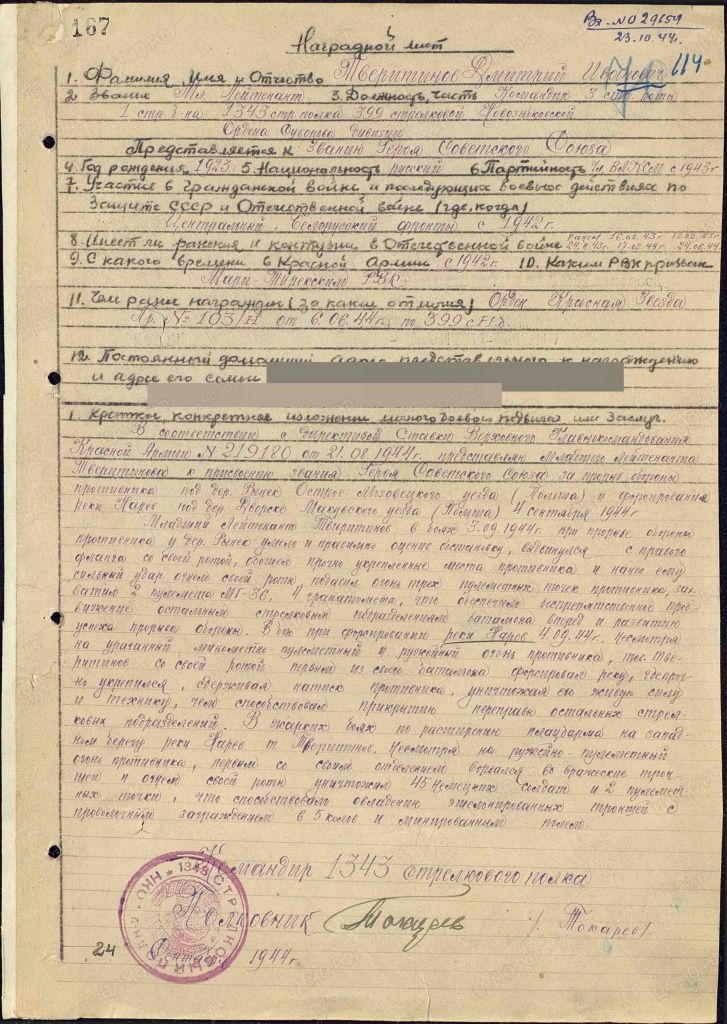 167
Вх. № 029659
23.10.44г.
Наградной лист
114
1. Фамилия Имя и Отчество Тверитинов Дмитрий Иванович
2. Звание Мл. Лейтенант 3. Должность, часть Командир 3 стр. роты
1 стр. б-на 1343 стр. полка 399 стрелковой Новозыбковской
Ордена Суворова дивизии
Представляется к Званию Героя Советского Союза
4. Год рождения 1923 5. Национальность русский 6. Партийность чл. ВЛКСМ с 1943г
7. Участие в гражданской войне и последующих боевых действиях по
защите СССР и Отечественной войне (где, когда)
Центральный, Белорусский фронты с 1942г.
8. Имеет ли ранения и контузии в Отечественной войне
9. С какого времени в Красной Армии с 1942г. 10. Каким РВК призван
Мари-Турекским РВК
11. Чем ранее награжден (за какие отличия) Орден Красная Звезда
Пр. № 103/н от 6.06.44г. по 399 сд.
12. Постоянный домашний адрес представляемого к награждению
и адрес его семьи
1. Краткое, конкретное изложение личного боевого подвига или заслуг.
В соответствии с директивой Ставки Верховного Главнокомандования
Красной Армии № 219180 от 21.08.1944г. представляю Младшего Лейтенанта
Тверитинова к присвоению звания Героя Советского Союза за прорыв обороны
противника под дер. Рынек Остров-Мазовецкого уезда (Польша) и форсирования
реки Нарев под дер. Дворске Макувского уезда (Польша) 4 сентября 1944г.
Младший Лейтенант Тверитинов в боях 3.09.1944г. при прорыве обороны
противника у дер. Рынек умело и правильно оценив обстановку, выдвинулся с правого
фланга со своей ротой, обошел прочно укрепленные места противника и нанес ему
сильный удар огнем своей роты, подавил огонь трех пулеметных точек противника, зах-
ватил 2 пулемета МГ-36, 4 гранатомета, что обеспечило беспрепятственное прод-
вижение остальным стрелковым подразделениям батальона вперед и развитию
успеха прорыва обороны. В бою при форсировании реки Нарев 4.09.44г. несмотря
на ураганный минометно-пулеметный и ружейный огонь противника, тов. Тве-
ритинов со своей ротой первым из своего батальона форсировал реку, быстро проч-
но укрепился, сдерживая натиск противника, уничтожая его живую силу
и технику, чем способствовал прикрытию переправы остальных стрел-
ковых подразделений. В жарких боях по расширению плацдарма на запад-
ном берегу реки Нарев т. Тверитинов, несмотря на ружейно-пулеметный
огонь противника, первым со своим отделением ворвался во вражеские тран-
шеи и огнем своей роты уничтожил 45 немецких солдат и 2 пулемет-
ных точки, что способствовало овладению эшелонированных траншей с
проволочным заграждением в 5 колов и минированным полем.
Командир 1343 стрелкового полка
Полковник Токарев /Токарев/.
24 Сентября 1944г.